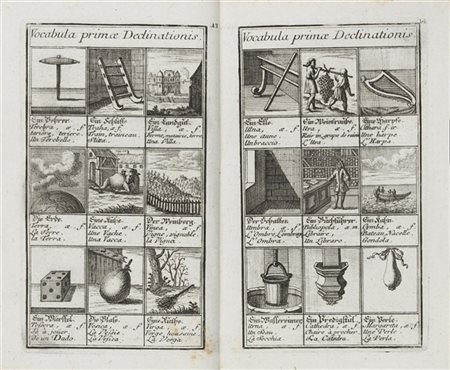 Vocabula primæ Declinationis.
Ein Bohrer.
Terebra, æ f.
Un Terebello.
Ein Schlitt
Traha, æ f.
Train, traineau.
Ein Landgut.
Villa, æ f.
Una Villa.
Die Erde.
Terra, æ f.
La Terre
la Terra.
Eine Kuhe.
Vacca, æ f.
Une Vache
Una Vacca.
Der Weinberg.
Vinea, æ f.
Vigne, vignoble.
la Vigna
Ein Würffel.
Tessera, æ f.
Dé à jouer.
de un Dado.
Die Blaß.
Vesica, æ f.
La Vesica
Eine Ruthe.
Virga, æ f.
La Verga
Vocabula primæ Declinationis.
Ein Elle.
Ulna, æ f.
Une aune
Un braccio.
Ein Weintraube.
Uva, æ f.
L'Uva
Eine Harpfe.
Cithara f. æ
Une harpe
L'Harpa
Der Schatten.
Umbra, æ f.
L'Ombre
L'Ombra.
Ein Buchführer.
Bibliopola, æ m.
Libraire,
Un Libraro.
Ein Kahn.
Cymba, æ f.
Bateau, Nacelle.
Gondola.
Ein Wassereimer.
Urna, æ f.
Un Seau
La Secchia
Ein Predigstul.
Cathedra, æ f.
Chaire à precher
La Catedra.
Ein Perle.
Margarita, æ f.
Une Perle
La Perla.